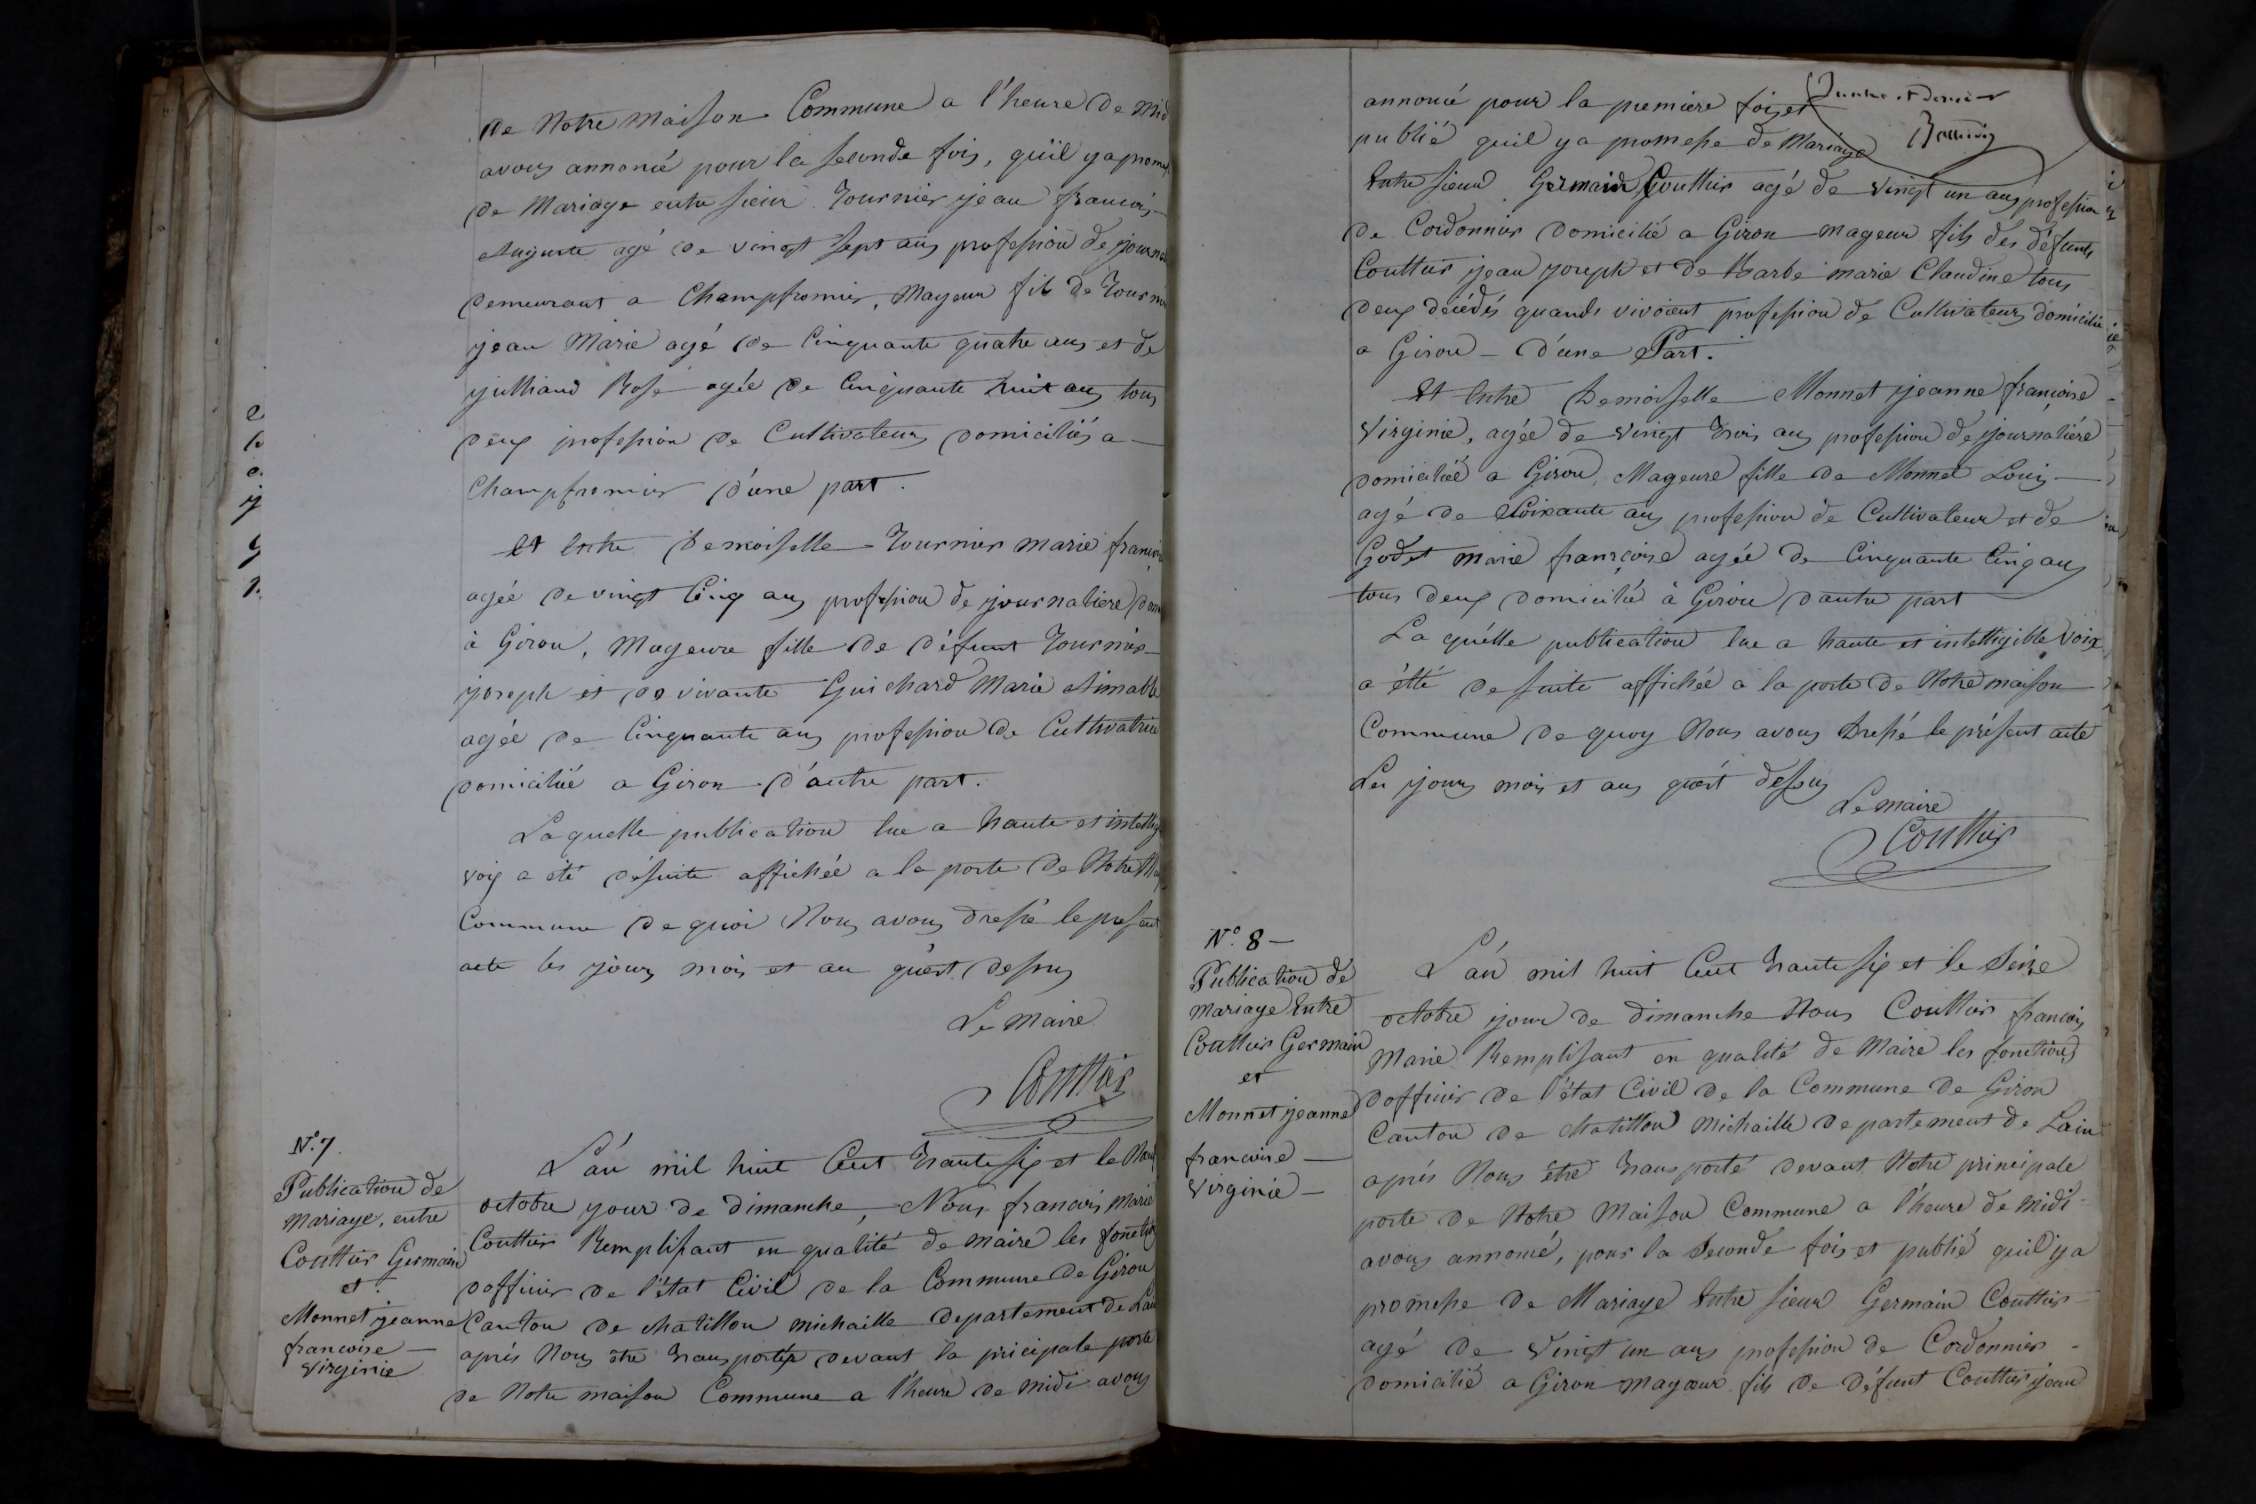 de Notre Maison Commune a l'heure de mid
avons annoncé pour la seconde fois, qu'il y a prom
de Mariage entre sieur Tournier jean francois
Auguste agé de vingt sept ans profession de journa
demeurant a Champfromier, Mageur fils de Tourni
jean Marie agé de Cinquante quatre ans et de
julliand Rose agée de Cinquante huit ans tous
deux profession de Cultivateurs domiciliés a
Champfromier d'une part.
et Entre Demoiselle Tournier marie françoi
agée de vingt Cinq ans profession de journaliere dom
à Giron, Mageure fille de défunt Tournier
joseph et de vivante Guichard Marie Aimable
agée de Cinquante ans profession de Cultivatrice
domiciliée a Giron d'autre part.
Laquelle publication lue a haute et intellig
voix a été désuite affichée a la porte de Notre M
Commune de quoi Nous avons dressé le présent
acte les jours mois et an qu'est dessus
Le Maire
Couttier
N° 7.
Publication de
Mariage, entre
Couttier Germain
et
Monnet jeanne
francoise
Virginie
L'an mil huit Cent trante six et le Neuf
octobre jour de dimanche, Nous francois Marie
Couttier Remplissant en qualité de maire les fonction
d'officier de l'état Civil de la Commune de Giron
Canton de chatillon michaille departement de Lain
aprés Nous être transportér devant la pricipale porte
de Notre maison Commune a l'heure de midi avons
annoncé pour la premiere fois et
publié quil y a promesse de Mariage
Entre sieur Germain Couttier agé de vingt un ans profession
de Cordonnier domicilié a Giron mageur fils des défunts
Couttier jean joseph et de Barbe marie Claudine tous
deux décédés quands vivoient profession de Cultivateurs domicilié
a Giron d'une Part.
Et Entre Demoiselle Monnet jeanne françoise
Virginie, agée de vingt trois ans profession de journaliére
domiciliée a Giron, Mageure fille de Monnet Louis
agé de soixante ans profession de Cultivateur et de
Godet marie françoise agée de Cinquante Cinq ans
tous deux domicilié à Giron d'autre part
La quélle publication lue a haute et intelligible voix
a été de suite affichée a la porte de Notre maison
Commune de quoy Nous avons Dressé le présent acte
Les jours mois et ans quést dessus
Le maire
Couttier
N° 8
Publication de
mariage Entre
Couttier Germain
et
Monnet jeanne
francoise
Virginie
L'an mil huit Cent trante six et le Seize
octobre jour de dimanche Nous Couttier francois
Marie Remplissant en qualité de Maire les fonctions
d'officier de l'état Civil de la Commune de Giron
Canton de chatillon Michaille departement de Lain
aprés Nous être transporté devant Notre principale
porte de Notre Maison Commune a l'heure de midi
avons annoncé, pour la Seconde fois et publié quil y a
promesse de Mariage Entre sieur Germain Couttier
agé de Vingt un ans profession de Cordonnier
domicilié a Giron mageur fils de défunt Couttier jean